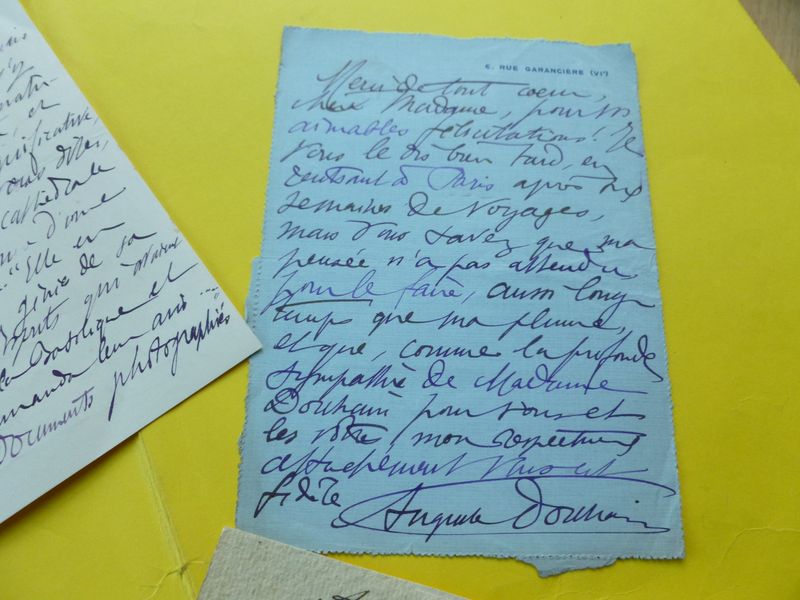 6, RUE GARANCIÈRE (VIe)
Merci de tout coeur,
chère Madame, pour vos
aimables félicitations! Je
vous le dis bien tard, en
rentrant à Paris après dix
semaines de voyages,
mais vous savez que ma
pensée n'a pas attendu
pour le faire, aussi long-
temps que ma plume,
et que, comme la profonde
sympathie de Madame
Dorchain pour vous et
les vôtres, mon respectueux
attachement vous est
fidèle
Auguste Dorchain
et
significative
vous dites,
cathédrale
d'une
"Elle en
génie de sa
esprits qui
la Basilique et
demanda leur avis ...
documents photographiés